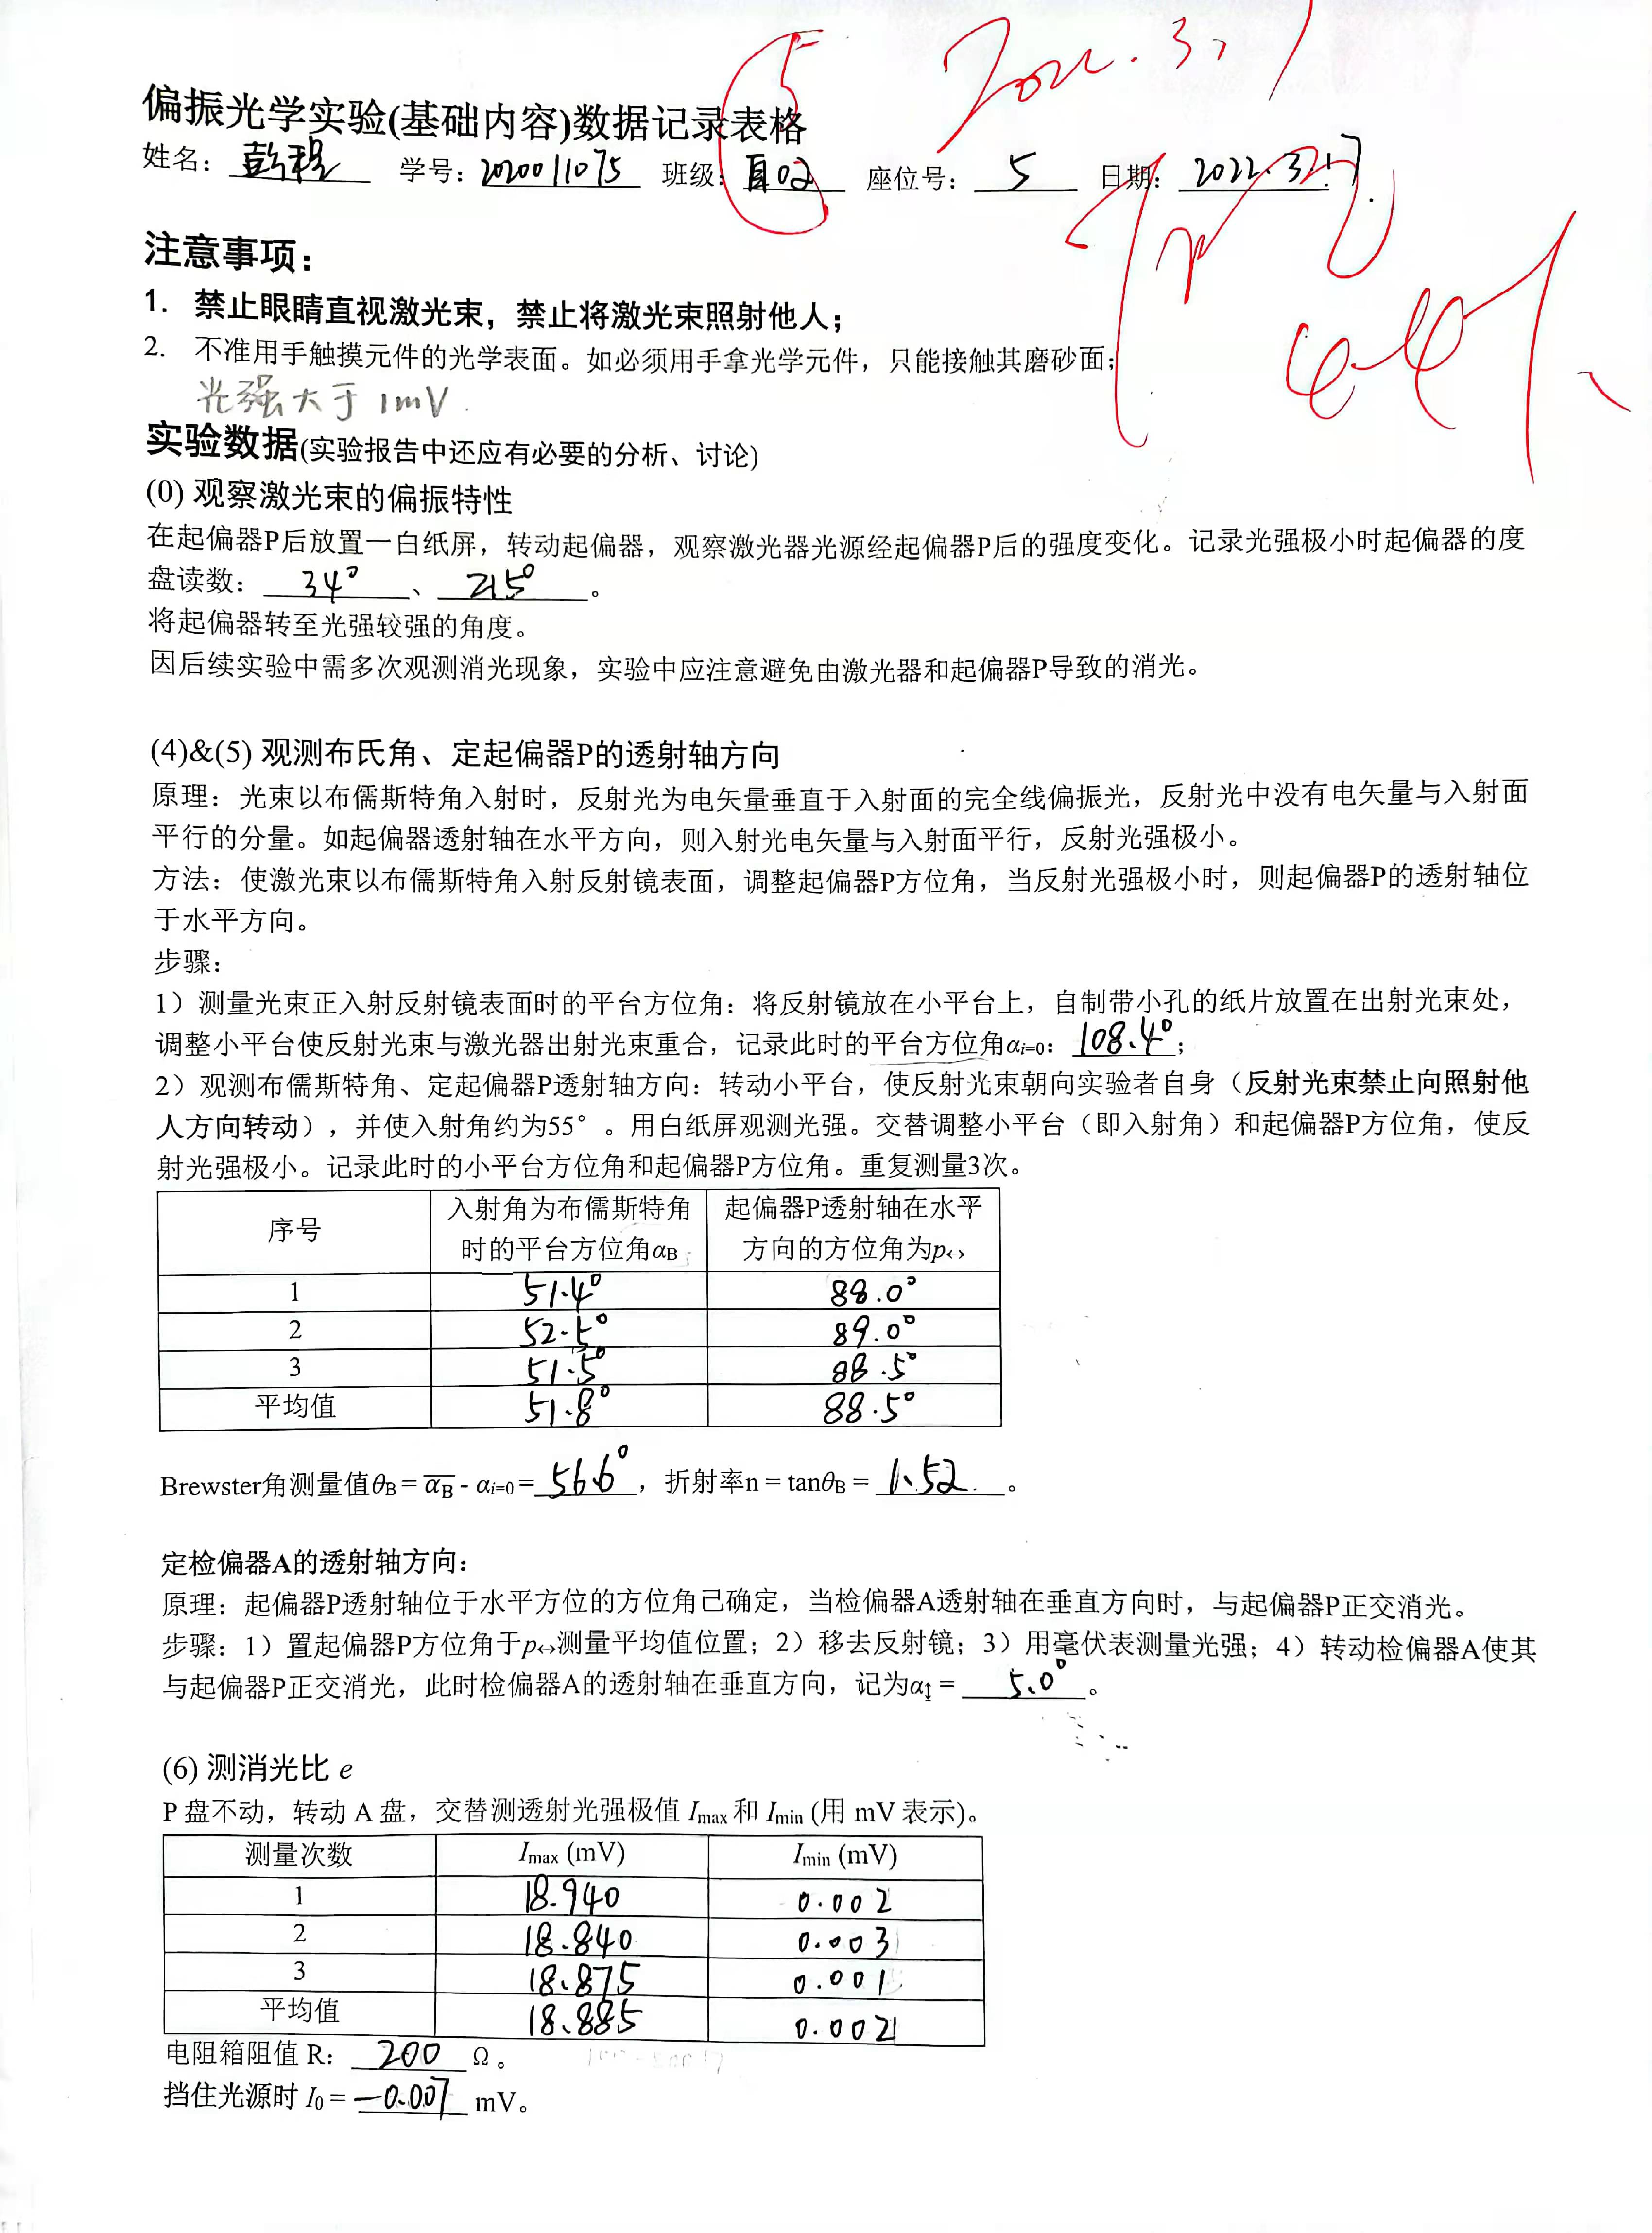 2022.3.17
5
偏振光学实验(基础内容)数据记录表格
姓名: 彭程 学号: 2020011075 班级: 自02 座位号: 5 日期: 2022.3.17
注意事项:
1. 禁止眼睛直视激光束,禁止将激光束照射他人;
2. 不准用手触摸元件的光学表面。如必须用手拿光学元件,只能接触其磨砂面;
光强大于1mV
实验数据(实验报告中还应有必要的分析、讨论)
(0) 观察激光束的偏振特性
在起偏器P后放置一白纸屏,转动起偏器,观察激光器光源经起偏器P后的强度变化。记录光强极小时起偏器的度
盘读数: 34° 、 215° 。
将起偏器转至光强较强的角度。
因后续实验中需多次观测消光现象,实验中应注意避免由激光器和起偏器P导致的消光。
(4)&(5) 观测布氏角、定起偏器P的透射轴方向
原理:光束以布儒斯特角入射时,反射光为电矢量垂直于入射面的完全线偏振光,反射光中没有电矢量与入射面
平行的分量。如起偏器透射轴在水平方向,则入射光电矢量与入射面平行,反射光强极小。
方法:使激光束以布儒斯特角入射反射镜表面,调整起偏器P方位角,当反射光强极小时,则起偏器P的透射轴位
于水平方向。
步骤:
1)测量光束正入射反射镜表面时的平台方位角:将反射镜放在小平台上,自制带小孔的纸片放置在出射光束处,
调整小平台使反射光束与激光器出射光束重合,记录此时的平台方位角αi=0: 108.4° ;
2)观测布儒斯特角、定起偏器P透射轴方向:转动小平台,使反射光束朝向实验者自身(反射光束禁止向照射他
人方向转动),并使入射角约为55°。用白纸屏观测光强。交替调整小平台(即入射角)和起偏器P方位角,使反
射光强极小。记录此时的小平台方位角和起偏器P方位角。重复测量3次。
序号 入射角为布儒斯特角时的平台方位角αB 起偏器P透射轴在水平方向的方位角为p↔
1 51.4° 88.0°
2 52.5° 89.0°
3 51.5° 88.5°
平均值 51.8° 88.5°
Brewster角测量值θB = αB - αi=0 = 56.6° ,折射率n = tanθB = 1.52 。
定检偏器A的透射轴方向:
原理:起偏器P透射轴位于水平方位的方位角已确定,当检偏器A透射轴在垂直方向时,与起偏器P正交消光。
步骤:1)置起偏器P方位角于p↔测量平均值位置;2)移去反射镜;3)用毫伏表测量光强;4)转动检偏器A使其
与起偏器P正交消光,此时检偏器A的透射轴在垂直方向,记为α↕ = 5.0° 。
(6) 测消光比 e
P 盘不动,转动 A 盘,交替测透射光强极值 Imax 和 Imin (用 mV 表示)。
测量次数 Imax (mV) Imin (mV)
1 18.940 0.002
2 18.840 0.003
3 18.875 0.001
平均值 18.885 0.002
电阻箱阻值 R: 200 Ω。
挡住光源时 I0 = -0.007 mV。